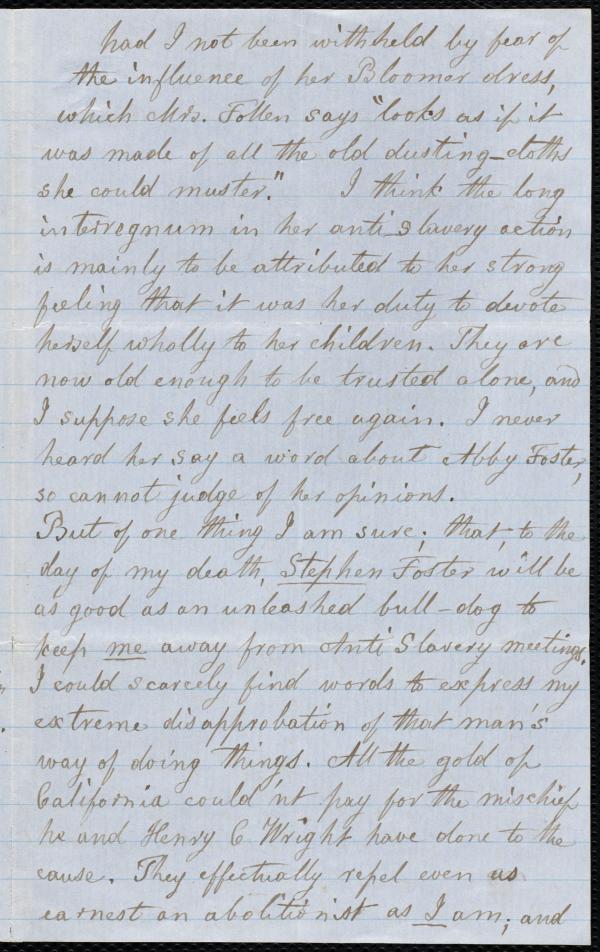 had I not been withheld by fear of
the influence of her Bloomer dress,
which Mrs. Follen says "looks as if it
was made of all the old dusting-cloths
she could muster." I think the long
interregnum in her anti slavery action
is mainly to be attributed to her strong
feeling that it was her duty to devote
herself wholly to her children. They are
now old enough to be trusted alone, and
I suppose she feels free again. I never
heard her say a word about Abby Foster,
so cannot judge of her opinions.
But of one thing I am sure; that, to the
day of my death, Stephen Foster will be
as good as an unleashed bull-dog to
keep me away from Anti Slavery meetings.
I could scarcely find words to express my
extreme disapprobation of that man's
way of doing things. All the gold of
California could 'nt pay for the mischief
he and Henry C Wright have done to the
cause. They effectually repel even as
earnest an abolitionist as I am; and